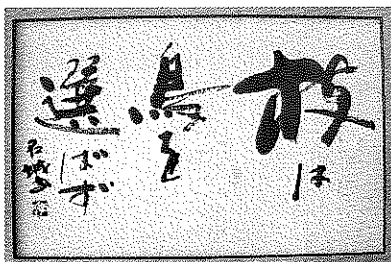 枝は
鳥を
選ばず